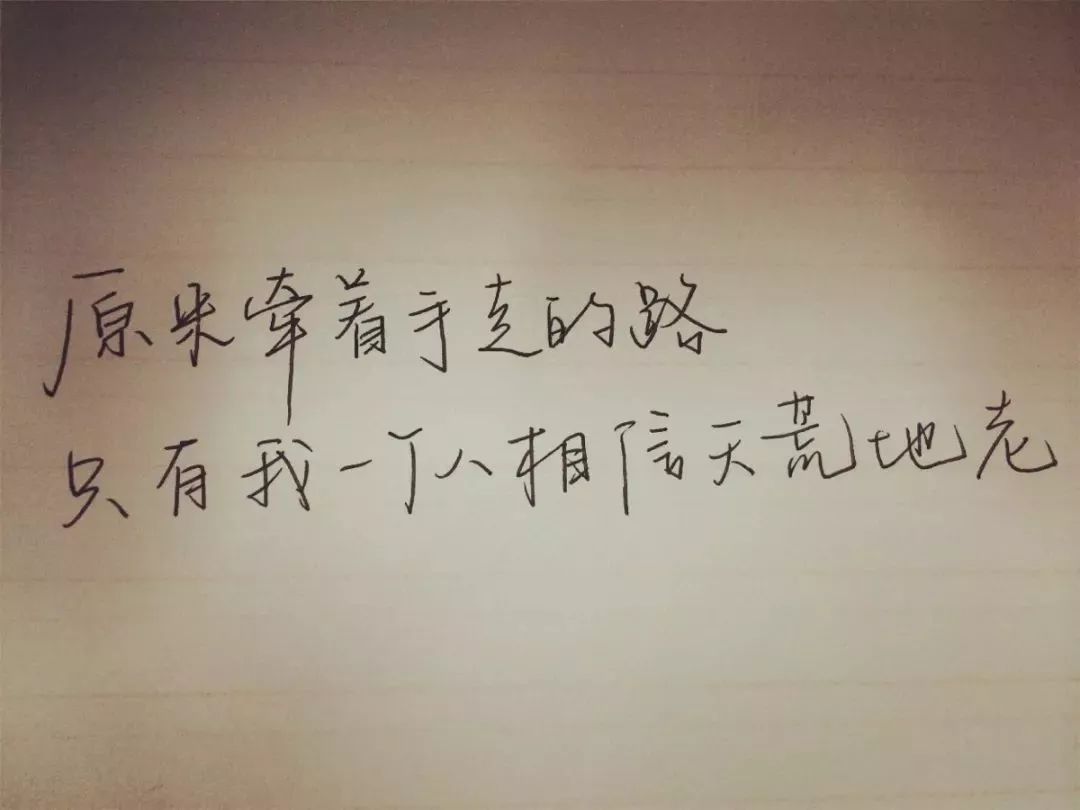 原来牵着手走的路
只有我一个人相信天荒地老